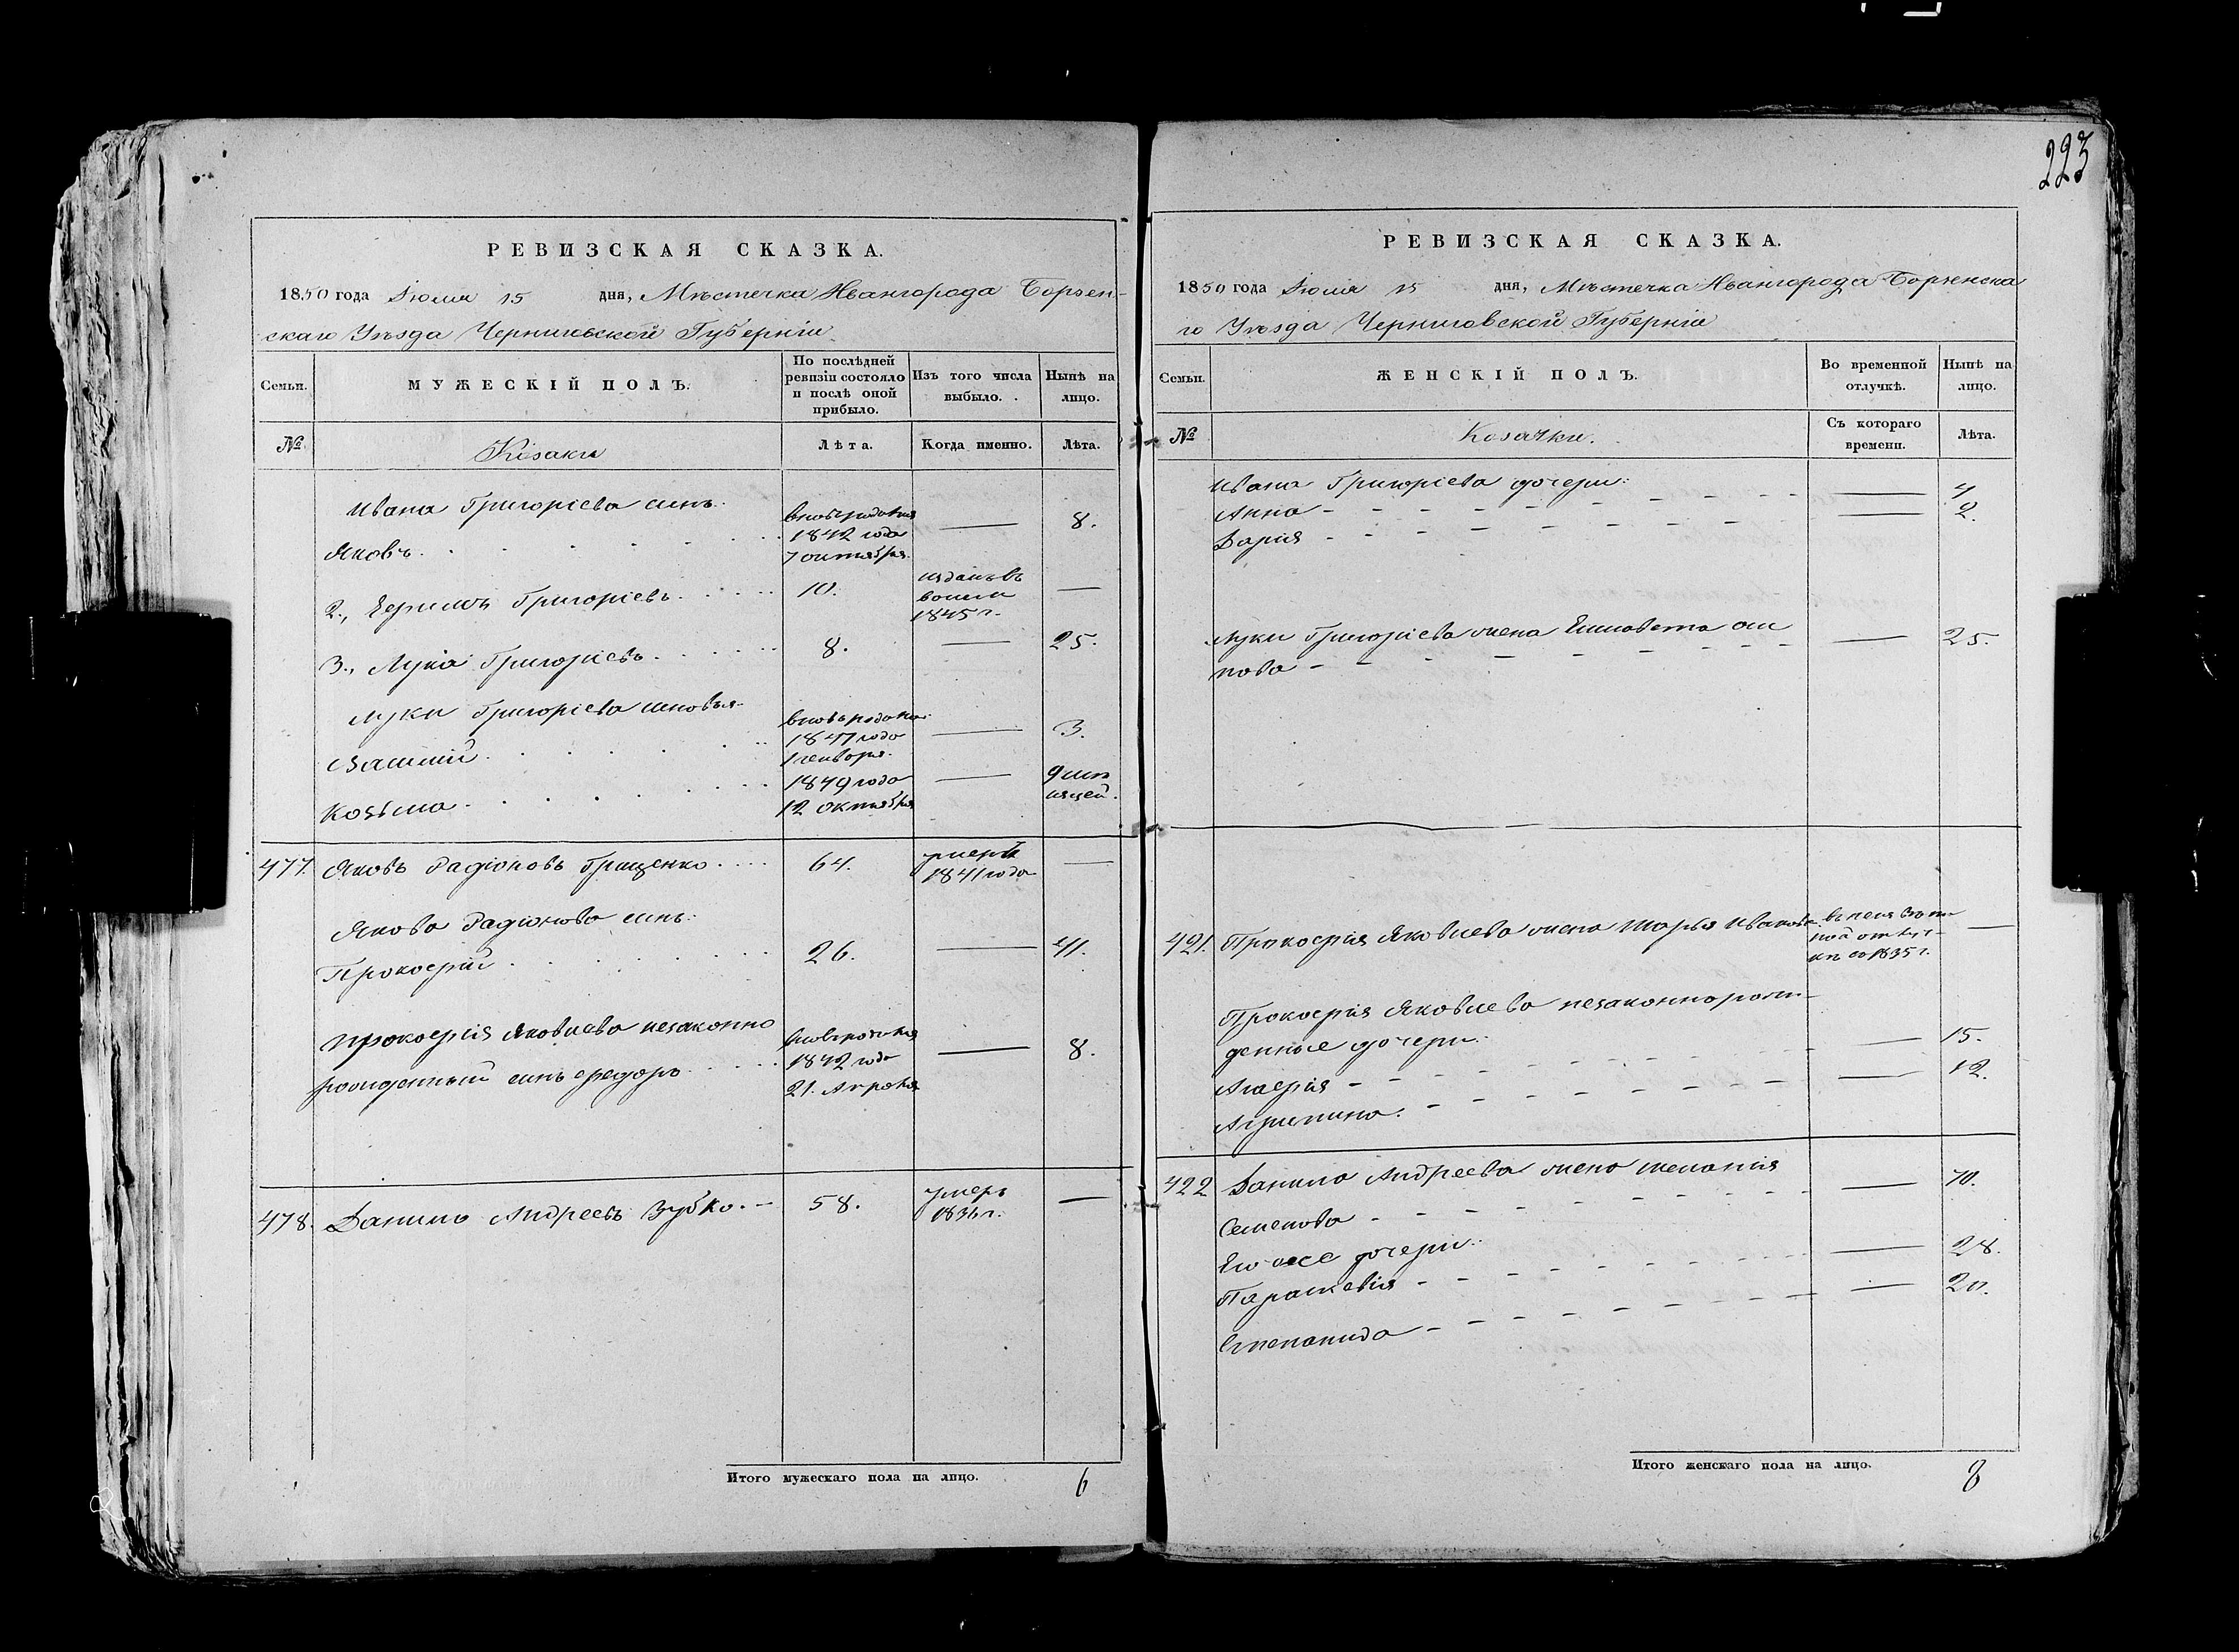 223
РЕВИЗСКАЯ СКАЗКА.
1850 года Іюля 15 дня, Мѣстечка Ивангорода Борзен-
скаго Уѣзда Черниговской Губерніи
Семьи.
МУЖЕСКІЙ ПОЛЪ.
По послѣдней ревизіи состояло и послѣ оной прибыло.
Изъ того числа выбыло.
Нынѣ на лицо.
№
Козаки
Лѣта.
Когда именно.
Лѣта.
Ивана Григоріева сынъ:
Яковъ. вновьрожденъ 1842 года 7 октября — 8.
2., Ефимъ Григоріевъ. 10. 1845 г. —
3., Лука Григоріевъ. 8. — 25.
Луки Григоріева сыновья
Василій. вновьрожден 1847 года 1 генваря. — 3.
Козьма. 1849 года 12 октября — 9 мѣсяцей.
477. Яковъ Радіоновъ Грищенко. 64. умеръ 1841 года —
Якова Радіонова сынъ:
Прокофій 26. — 41.
Прокофія Яковлева незаконно
рожденный сынъ Федоръ 1842 года 21. — 8.
478. Данило Андреевъ Зубко. 58. умеръ 1836 г. —
Итого мужескаго пола на лицо. 6
РЕВИЗСКАЯ СКАЗКА.
1850 года Іюля 15 дня, Мѣстечка Ивангорода Борзенска
го Уѣзда Черниговской Губерніи
Семьи.
ЖЕНСКІЙ ПОЛЪ.
Во временной отлучкѣ.
Нынѣ на лицо.
№
Козачки.
Съ котораго времени.
Лѣта.
Ивана Григоріева дочери:
Анна — 4
Дарія — 2.
Луки Григоріева жена Елисавета Оси
пова — 25.
421. Прокофія Яковлева жена Марья Иванова со 1835 г. —
Прокофія Яковлева незаконнорож-
денные дочери:
Агафія — 15.
Агрипина. — 12.
422 Данила Андреева жена Меланія
Семенова — 70.
Его же дочери:
Параскевія — 28.
Степанида — 20.
Итого женскаго пола на лицо. 8